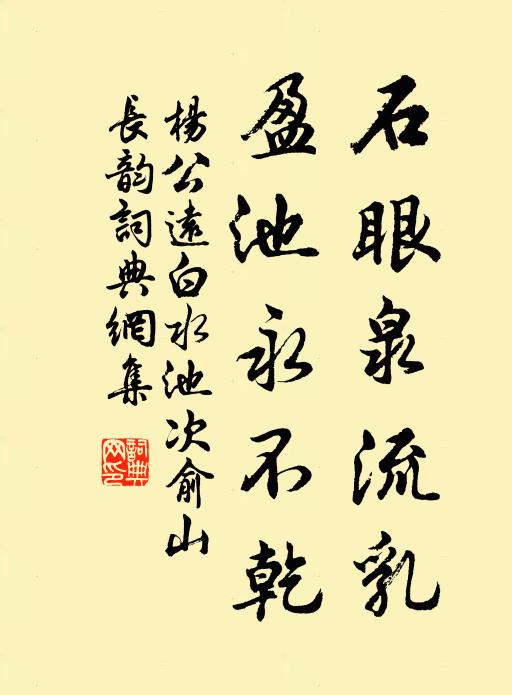 石眼泉流乳
盈池永不乾
楊公遠白水池次俞山
長韵詞典網集
詞典
网印